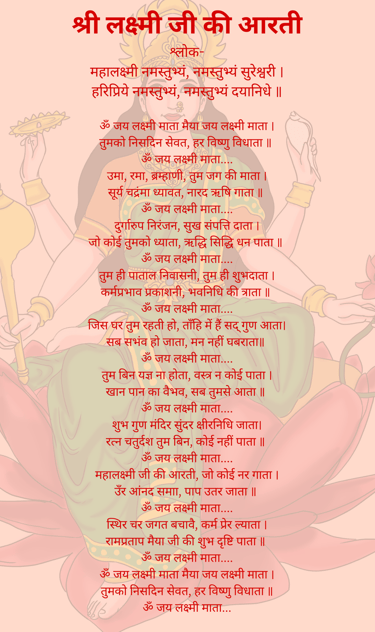 श्री लक्ष्मी जी की आरती
श्लोक-
महालक्ष्मी नमस्तुभ्यं, नमस्तुभ्यं सुरेश्वरी ।
हरिप्रिये नमस्तुभ्यं, नमस्तुभ्यं दयानिधे ॥
ॐ जय लक्ष्मी माता मैया जय लक्ष्मी माता ।
तुमको निसदिन सेवत, हर विष्णु विधाता ॥
ॐ जय लक्ष्मी माता....
उमा, रमा, ब्रम्हाणी, तुम जग की माता ।
सूर्य चद्रंमा ध्यावत, नारद ऋषि गाता ॥
ॐ जय लक्ष्मी माता....
दुर्गारुप निरंजन, सुख संपत्ति दाता ।
जो कोई तुमको ध्याता, ऋद्धि सिद्धि धन पाता ॥
ॐ जय लक्ष्मी माता....
तुम ही पाताल निवासनी, तुम ही शुभदाता ।
कर्मप्रभाव प्रकाशनी, भवनिधि की त्राता ॥
ॐ जय लक्ष्मी माता....
जिस घर तुम रहती हो, ताँहि में हैं सद् गुण आता।
सब सभंव हो जाता, मन नहीं घबराता॥
ॐ जय लक्ष्मी माता....
तुम बिन यज्ञ ना होता, वस्त्र न कोई पाता ।
खान पान का वैभव, सब तुमसे आता ॥
ॐ जय लक्ष्मी माता....
शुभ गुण मंदिर सुंदर क्षीरनिधि जाता।
रत्न चतुर्दश तुम बिन, कोई नहीं पाता ॥
ॐ जय लक्ष्मी माता....
महालक्ष्मी जी की आरती, जो कोई नर गाता ।
उँर आंनद समाा, पाप उतर जाता ॥
ॐ जय लक्ष्मी माता....
स्थिर चर जगत बचावै, कर्म प्रेर ल्याता ।
रामप्रताप मैया जी की शुभ दृष्टि पाता ॥
ॐ जय लक्ष्मी माता....
ॐ जय लक्ष्मी माता मैया जय लक्ष्मी माता ।
तुमको निसदिन सेवत, हर विष्णु विधाता ॥
ॐ जय लक्ष्मी माता...